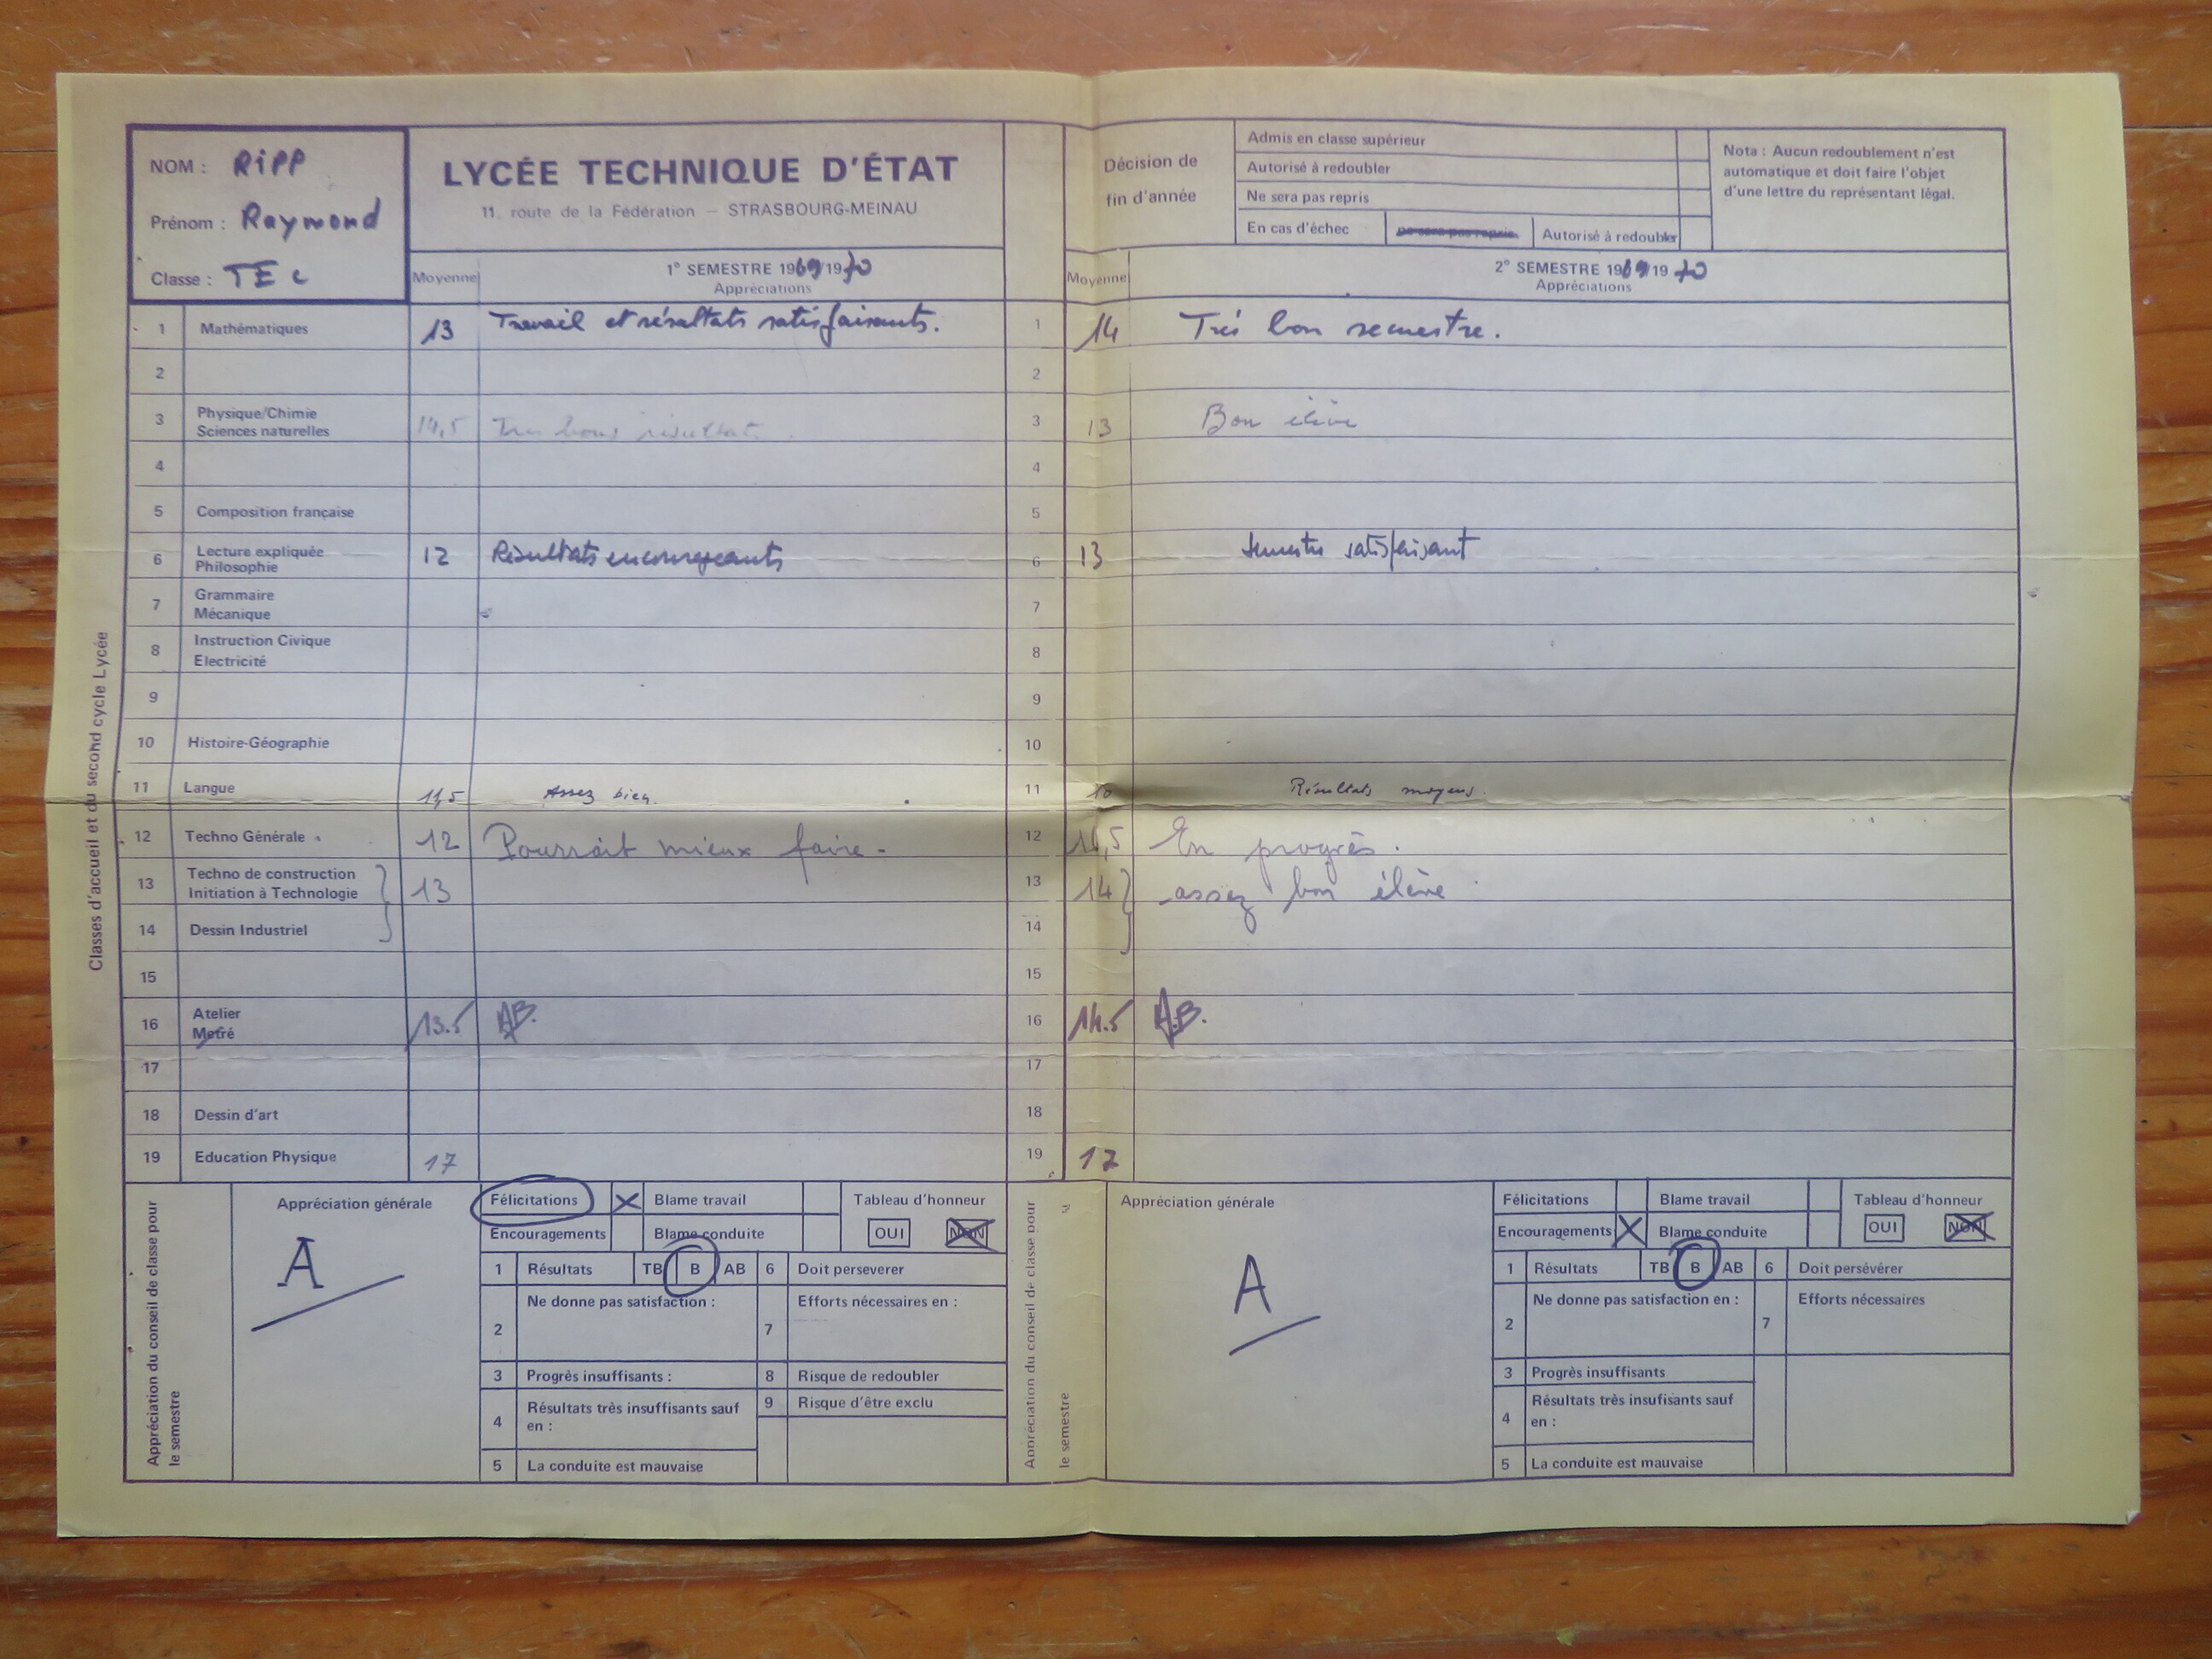 NOM : RiPP
Prénom : Raymond
Classe : TE c
LYCÉE TECHNIQUE D'ÉTAT
11, route de la Fédération — STRASBOURG-MEINAU
Décision de
fin d'année
Admis en classe supérieur
Autorisé à redoubler
Ne sera pas repris
En cas d'échec ne sera pas repris Autorisé à redoubler
Nota : Aucun redoublement n'est
automatique et doit faire l'objet
d'une lettre du représentant légal.
Moyenne 1° SEMESTRE 1969/1970
Appréciations
Moyenne 2° SEMESTRE 1969/1970
Appréciations
1 Mathématiques 13 Travail et résultats satisfaisants. 1 14 Très bon semestre.
2 2
3 Physique/Chimie
Sciences naturelles 14,5 Tres bons résultats. 3 13 Bon élève
4 4
5 Composition française 5
6 Lecture expliquée
Philosophie 12 Résultats encourageants 6 13 Semestre satisfaisant
7 Grammaire
Mécanique 7
8 Instruction Civique
Electricité 8
9 9
10 Histoire-Géographie 10
11 Langue 11,5 Assez bien. 11 10 Résultats moyens.
12 Techno Générale 12 Pourrait mieux faire - 12 En progrès.
13 Techno de construction
Initiation à Technologie 13 13 14 assez bon élève
14 Dessin Industriel 14
15 15
16 Atelier
Metré 13.5 AB. 16 14.5 A.B.
17 17
18 Dessin d'art 18
19 Education Physique 17 19 17
Classes d'accueil et du second cycle Lycée
Appréciation du conseil de classe pour
le semestre
Appréciation générale
A
Félicitations X Blame travail
Encouragements Blame conduite
Tableau d'honneur
OUI NON
1 Résultats TB B AB 6 Doit perseverer
2 Ne donne pas satisfaction : 7 Efforts nécessaires en :
3 Progrès insuffisants : 8 Risque de redoubler
4 Résultats très insuffisants sauf
en : 9 Risque d'être exclu
5 La conduite est mauvaise
Appréciation du conseil de classe pour
le semestre
Appréciation générale
A
Félicitations Blame travail
Encouragements X Blame conduite
Tableau d'honneur
OUI NON
1 Résultats TB B AB 6 Doit persévérer
2 Ne donne pas satisfaction en : 7 Efforts nécessaires
3 Progrès insuffisants
4 Résultats très insufisants sauf
en :
5 La conduite est mauvaise